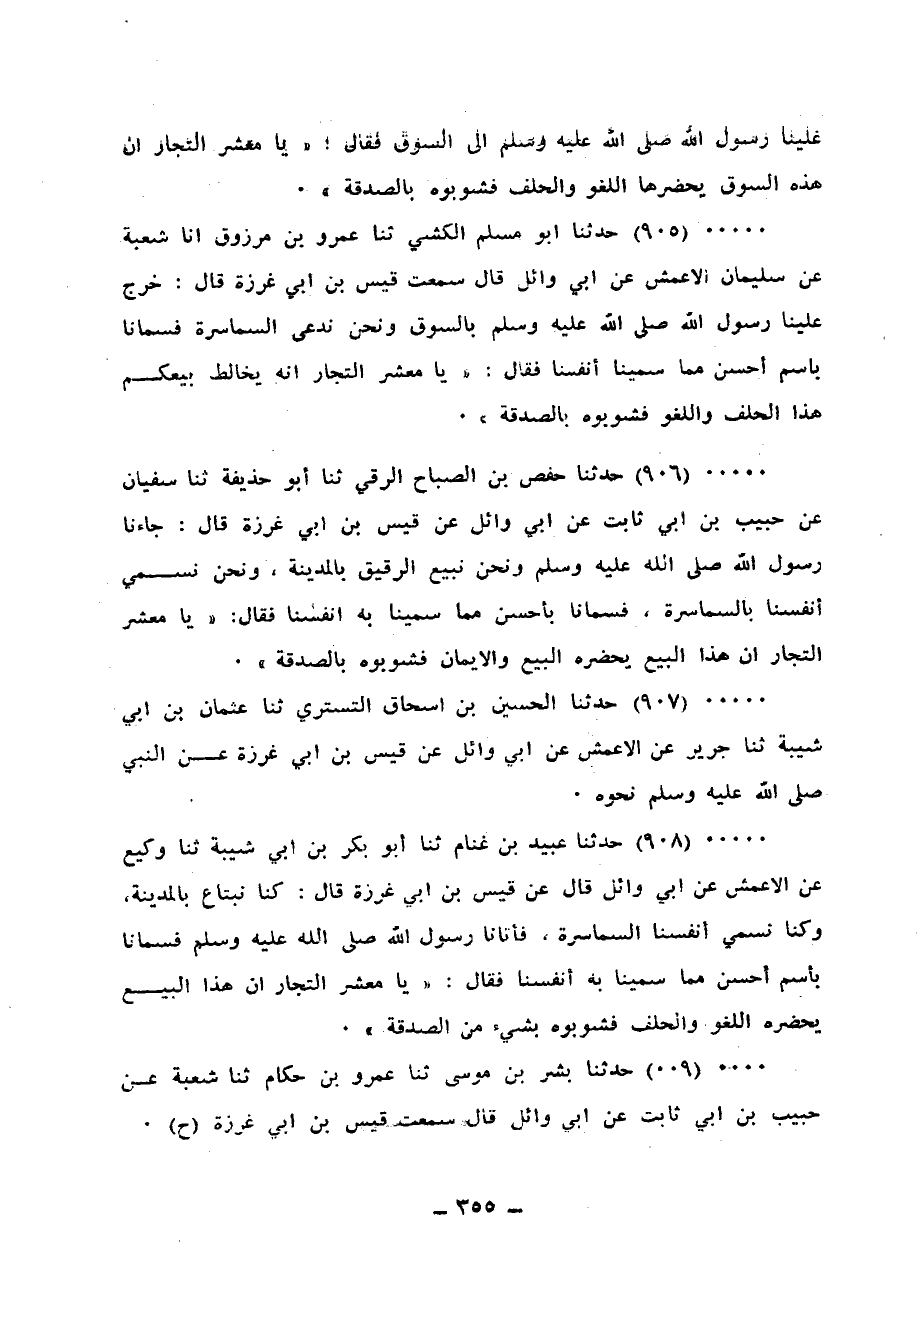 علينا رسول الله صلى الله عليه وسلم الى السوق فقال : « يا معشر التجار ان
هذه السوق يحضرها اللغو والحلف فشوبوه بالصدقة » ٠
٠٠٠٠٠ (٩٠٥) حدثنا ابو مسلم الكشي ثنا عمرو بن مرزوق انا شعبة
عن سليمان الاعمش عن ابي وائل قال سمعت قيس بن ابي غرزة قال : خرج
علينا رسول الله صلى الله عليه وسلم بالسوق ونحن ندعى السماسرة فسمانا
باسم أحسن مما سمينا أنفسنا فقال : « يا معشر التجار انه يخالط بيعكـــم
هذا الحلف واللغو فشوبوه بالصدقة » ٠
٠٠٠٠٠ (٩٠٦) حدثنا حفص بن الصباح الرقي ثنا أبو حذيفة ثنا سفيان
عن حبيب بن ابي ثابت عن ابي وائل عن قيس بن ابي غرزة قال : جاءنا
رسول الله صلى الله عليه وسلم ونحن نبيع الرقيق بالمدينة ، ونحن نســـمي
أنفسنا بالسماسرة ، فسمانا بأحسن مما سمينا به انفسنا فقال: « يا معشر
التجار ان هذا البيع يحضره البيع والايمان فشوبوه بالصدقة » ٠
٠٠٠٠٠ (٩٠٧) حدثنا الحسين بن اسحاق التستري ثنا عثمان بن ابي
شيبة ثنا جرير عن الاعمش عن ابي وائل عن قيس بن ابي غرزة عـــن النبي
صلى الله عليه وسلم نحوه ٠
٠٠٠٠٠ (٩٠٨) حدثنا عبيد بن غنام ثنا أبو بكر بن ابي شيبة ثنا وكيع
عن الاعمش عن ابي وائل قال عن قيس بن ابي غرزة قال : كنا نبتاع بالمدينة،
وكنا نسمي أنفسنا السماسرة ، فأتانا رسول الله صلى الله عليه وسلم فسمانا
بأسم أحسن مما سمينا به أنفسنا فقال : « يا معشر التجار ان هذا البيـــع
يحضره اللغو والحلف فشوبوه بشيء من الصدقة » ٠
٠٠٠٠ (٠٠٩) حدثنا بشر بن موسى ثنا عمرو بن حكام ثنا شعبة عـــن
حبيب بن ابي ثابت عن ابي وائل قال سمعت قيس بن ابي غرزة (ح) ٠
ــ ٣٥٥ ــ